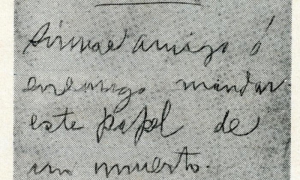 Sirvase amigo ó
enemigo mandar
este papel de
un muerto.